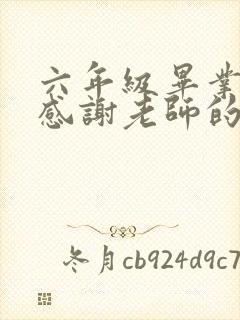 六年級畢業
感謝老師的
冬月cb924d9c7